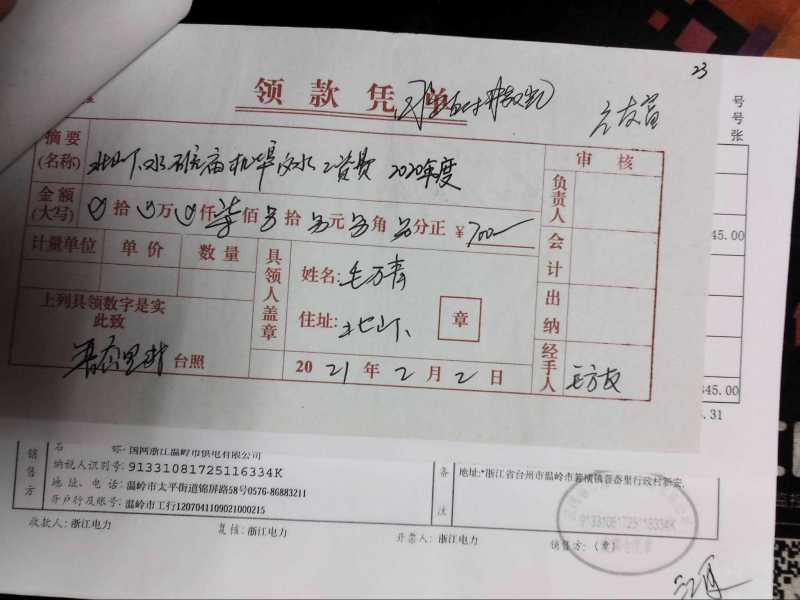 23
领款凭单
号
号
张
摘要
(名称)
水 机埠 水 工资费 2020年度
审核
金额
(大写)
拾 万 仟 柒 佰 拾 元 角 分正 ¥ 700
负责人
45.00
计量单位 单价 数量
具领人盖章
姓名: 毛方青
会计
上列具领数字是实
此致
住址: 北山下
章
出纳
台照
2021年2月2日
经手人
毛方友
345.00
.31
销售方
名 称: 国网浙江温岭市供电有限公司
纳税人识别号: 91331081725116334K
地址、电话: 温岭市太平街道锦屏路58号0576-86883211
开户行及账号: 温岭市工行1207041109021000215
备注
地址:*浙江省台州市温岭市箬横镇晋岙里行政村新安,
收款人: 浙江电力
复核: 浙江电力
开票人: 浙江电力
销售方: (章)
91331081725116334K